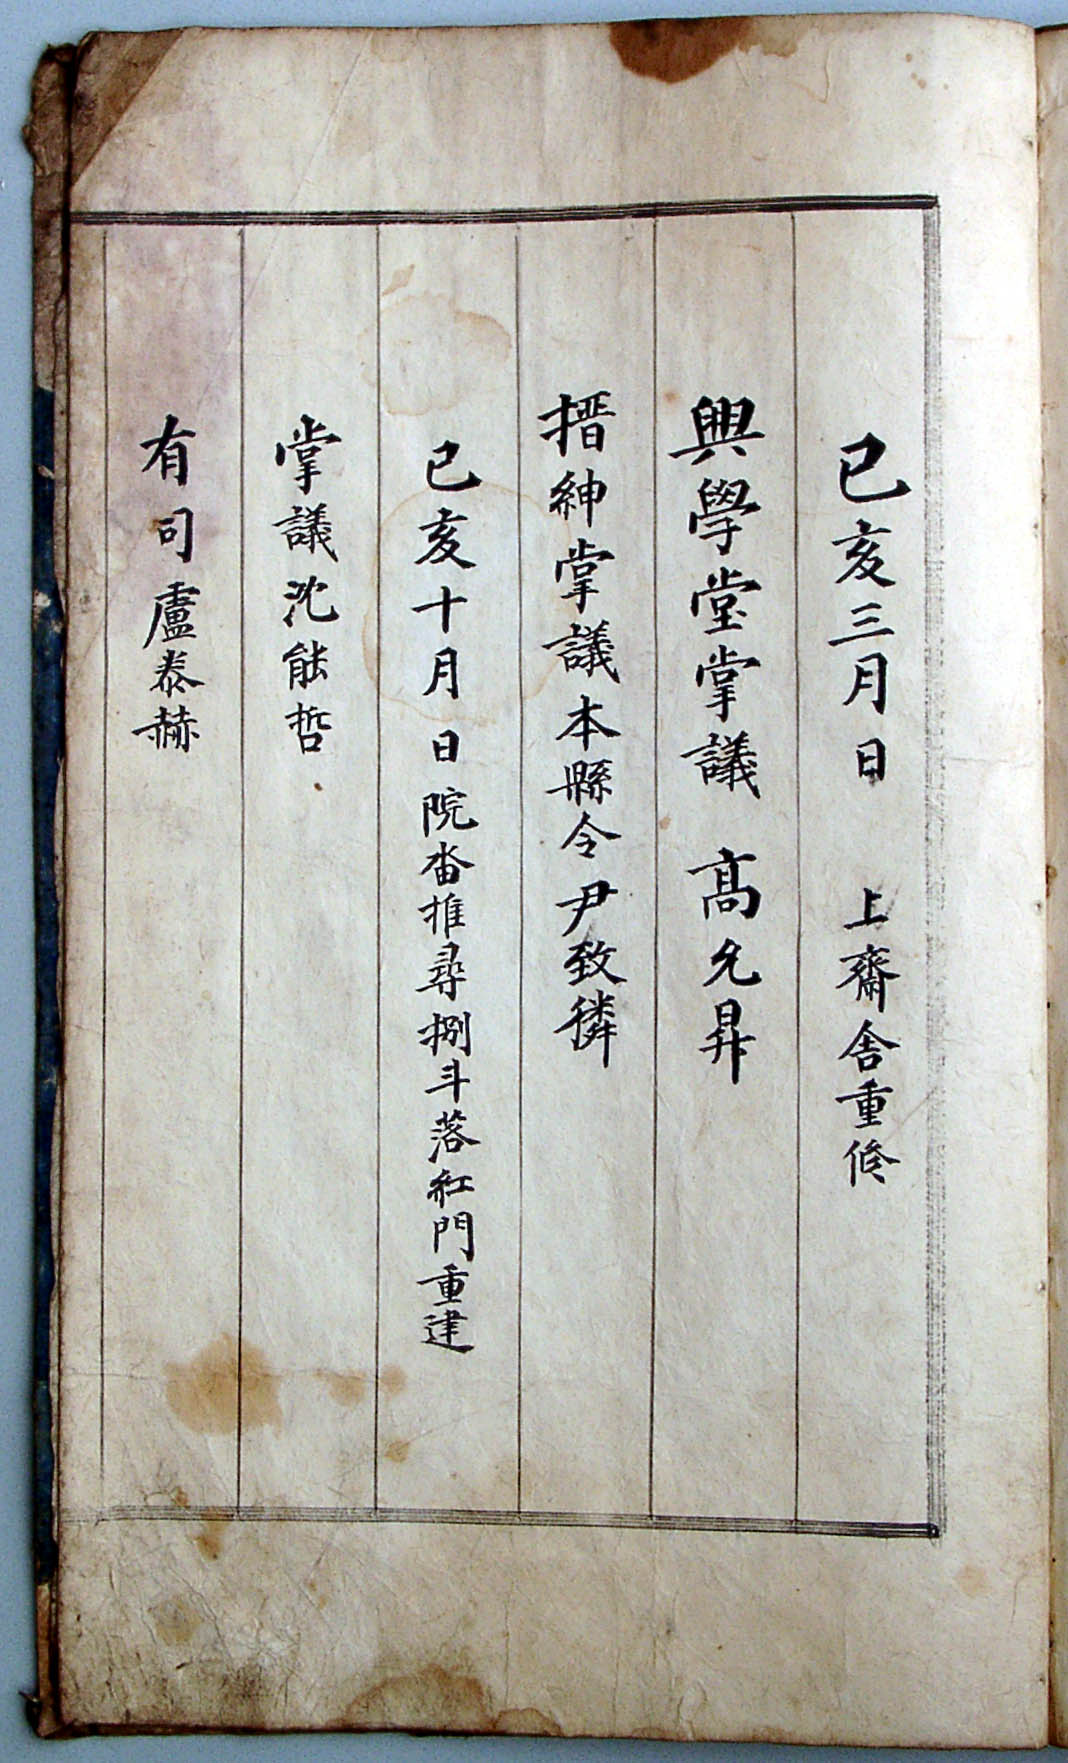 己亥三月日 上齋舍重修
興學堂掌議 髙允昇
搢紳掌議本縣令尹致獜
己亥十月日院畓推尋捌斗落紅門重建
掌議沈能哲
有司盧泰赫